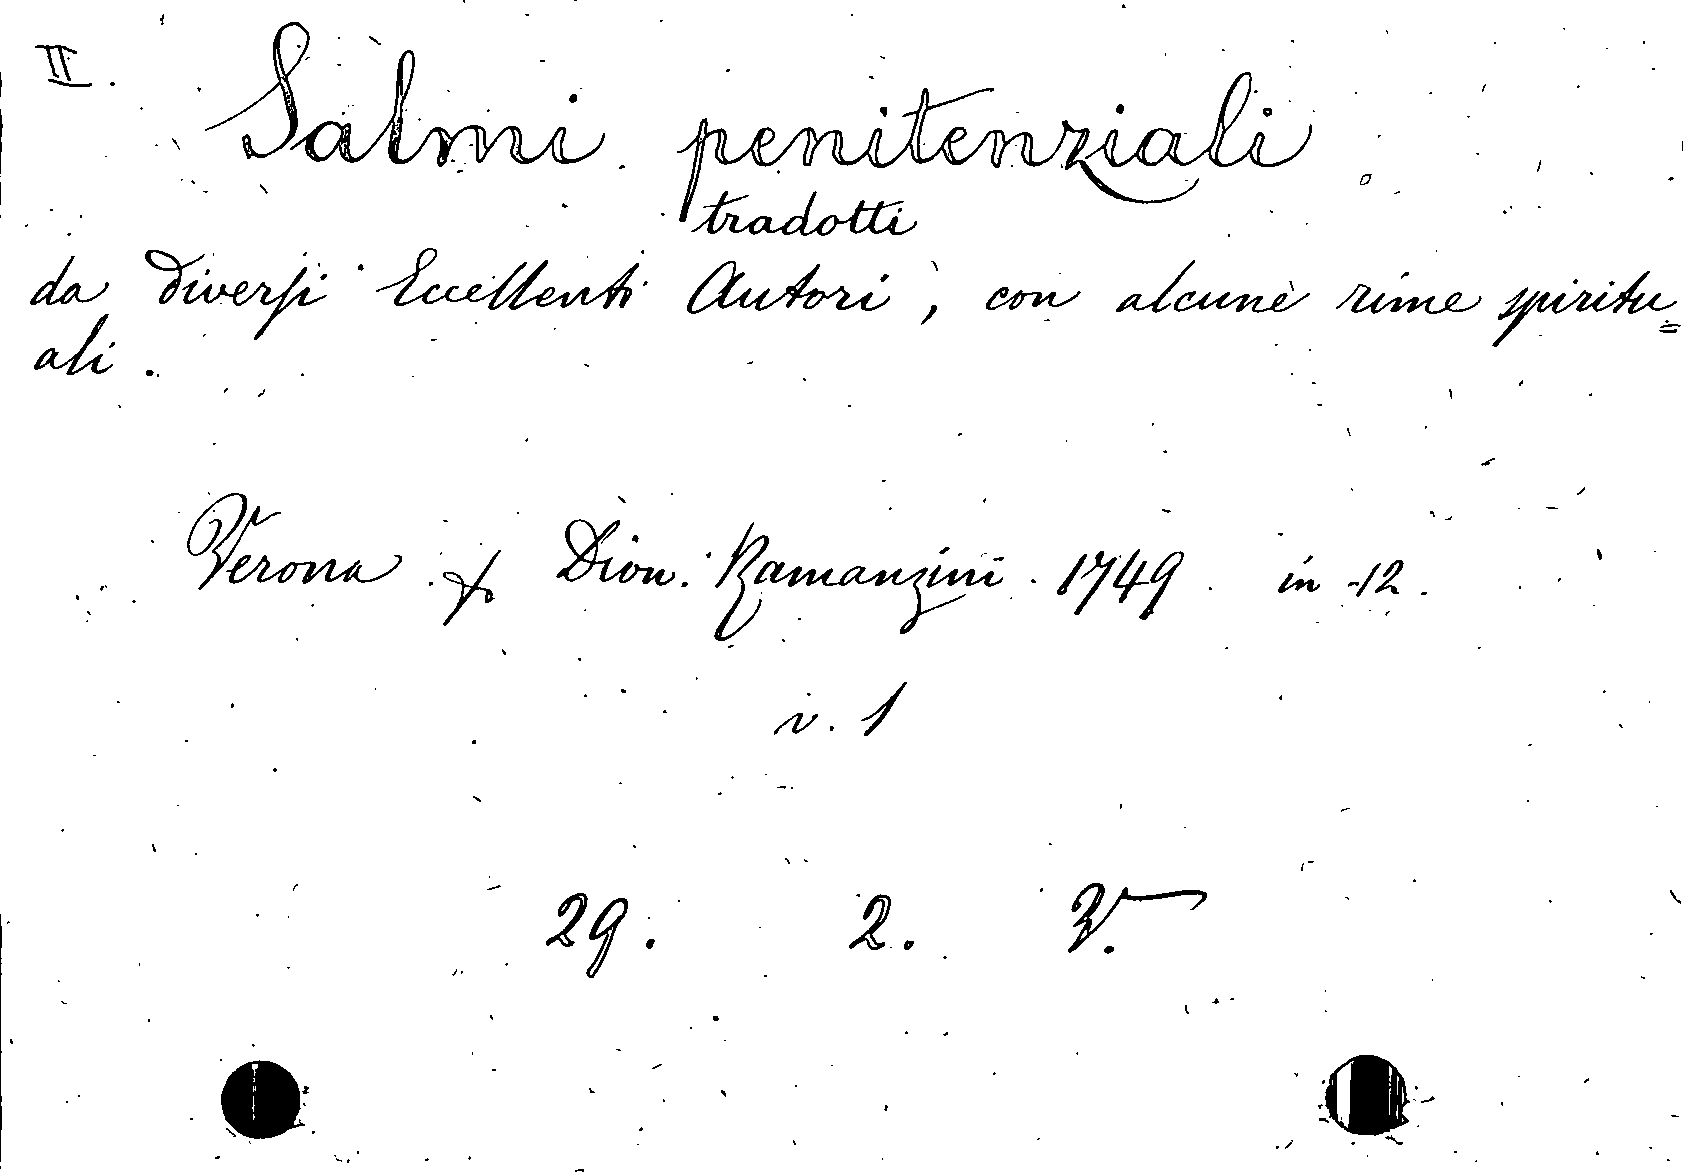 II.
Salmi penitenziali
tradotti
da diversi Eccellenti Autori, con alcune rime spiritu=
ali.
Verona Dion. Ramanzini. 1749 in-12.
v. 1
29. 2. V.